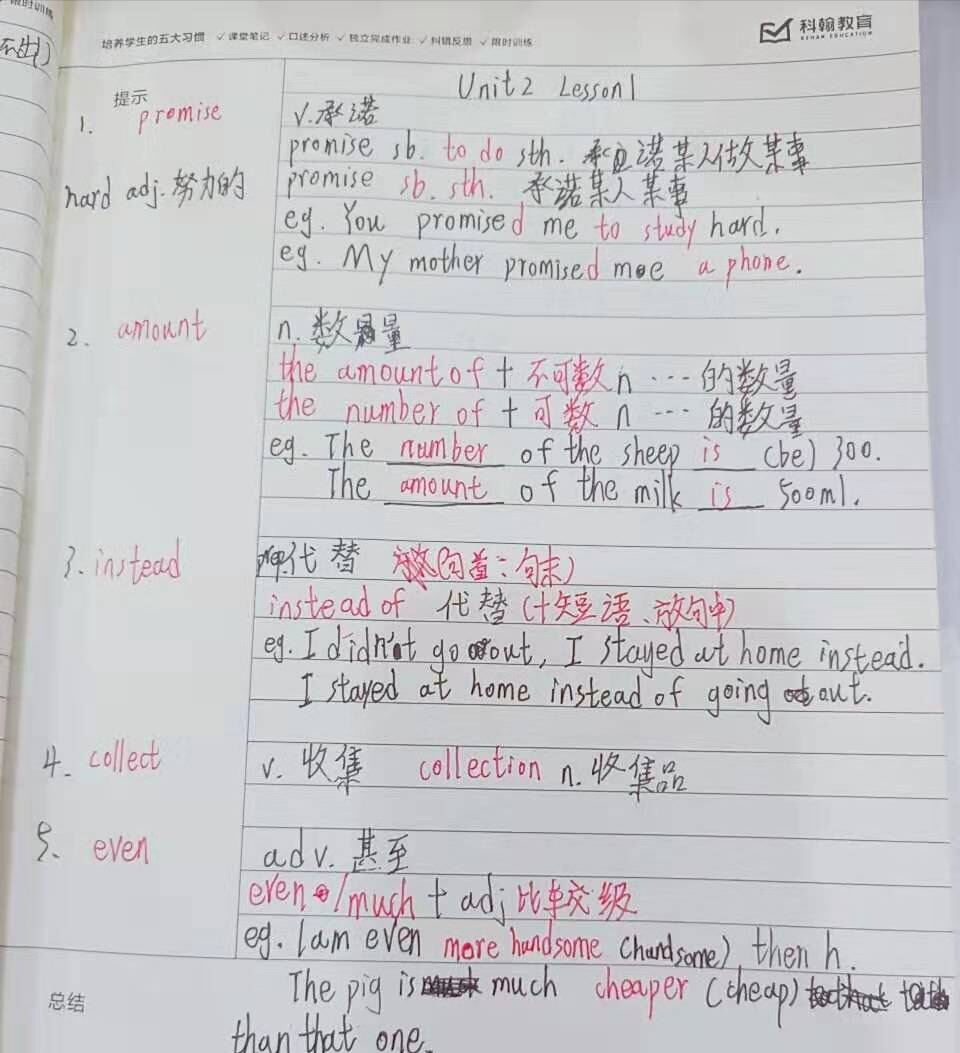 限时训练
培养学生的五大习惯 ✓课堂笔记 ✓口述分析 ✓独立完成作业 ✓纠错反思 ✓限时训练
科翰教育
KEHAN EDUCATION
提示
Unit2 Lesson1
1. promise
v.承诺
promise sb. to do sth. 承诺某人做某事
hard adj.努力的
promise sb. sth. 承诺某人某事
eg. You promised me to study hard.
eg. My mother promised me a phone.
2. amount
n.数量
the amount of + 不可数n …的数量
the number of + 可数n …的数量
eg. The number of the sheep is (be) 300.
The amount of the milk is 500ml.
3. instead
代替 (句首、句末)
instead of 代替(+短语、放句中)
eg. I didn't go out, I stayed at home instead.
I stayed at home instead of going out.
4. collect
v. 收集 collection n.收集品
5. even
adv. 甚至
even/much + adj比较级
eg. I am even more handsome (handsome) then h.
The pig is much cheaper (cheap)
总结
than that one.